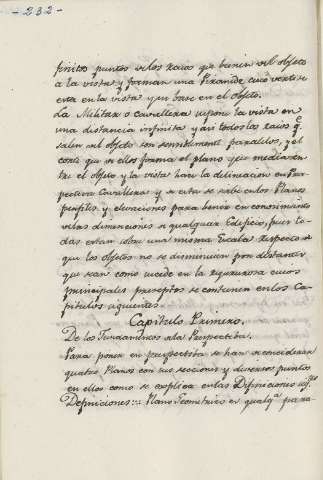 - 232 -
finitos puntos de los raios que bienen del objeto
a la vista y forman una Piramide cuio vertise
esta en la vista y su base en el objeto.
La Militar o cavallera supone la vista en
una distancia infinita y asi todos los raios q.
salen del objeto son sensiblemente paralelos, y el
corte que de ellos forma el plano que media en
tre el objeto y la vista hace la delineacion en Pers
pectiva Cavallera y de esta se sabe en los Planos
perfiles y elevaciones para benir en conosimiento
de las dimenciones de qualquier Edificio, pues to
das estan sobre una misma Escala respecto a
que los objetos no se disminuien por distantes
que sean como sucede en la rigurosa cuios
principales preceptos se contienen en los Ca
pitulos siguientes.
Capitulo Primero.
De los Fundamentos de la Perspectiva.
Para poner en perspectiva se han de conciderar
quatro Planos con sus secciones y diversos puntos
en ellos como se explica en las Difiniciones
Definiciones: Plano Geometrico es qualq.a para